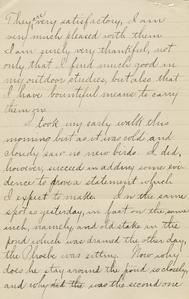 They are very satisfactory, I am
very much pleased with them
I am surely very thankful, not
only that I find much good in
my outdoor studies, but also that
I have bountiful means to carry
them on.
I took my early walk this
morning but as it was cold and
cloudy saw no new birds. I did,
however, succeed in adding some evi-
dence to prove a statement which
I expect to make. In the same
spot as yesterday, in fact on the same
inch, namely, and old stake in the
pond which was drained the other day,
the Phoebe was sitting. Now why
does he stay around the pond so closely,
and why did the was the second one